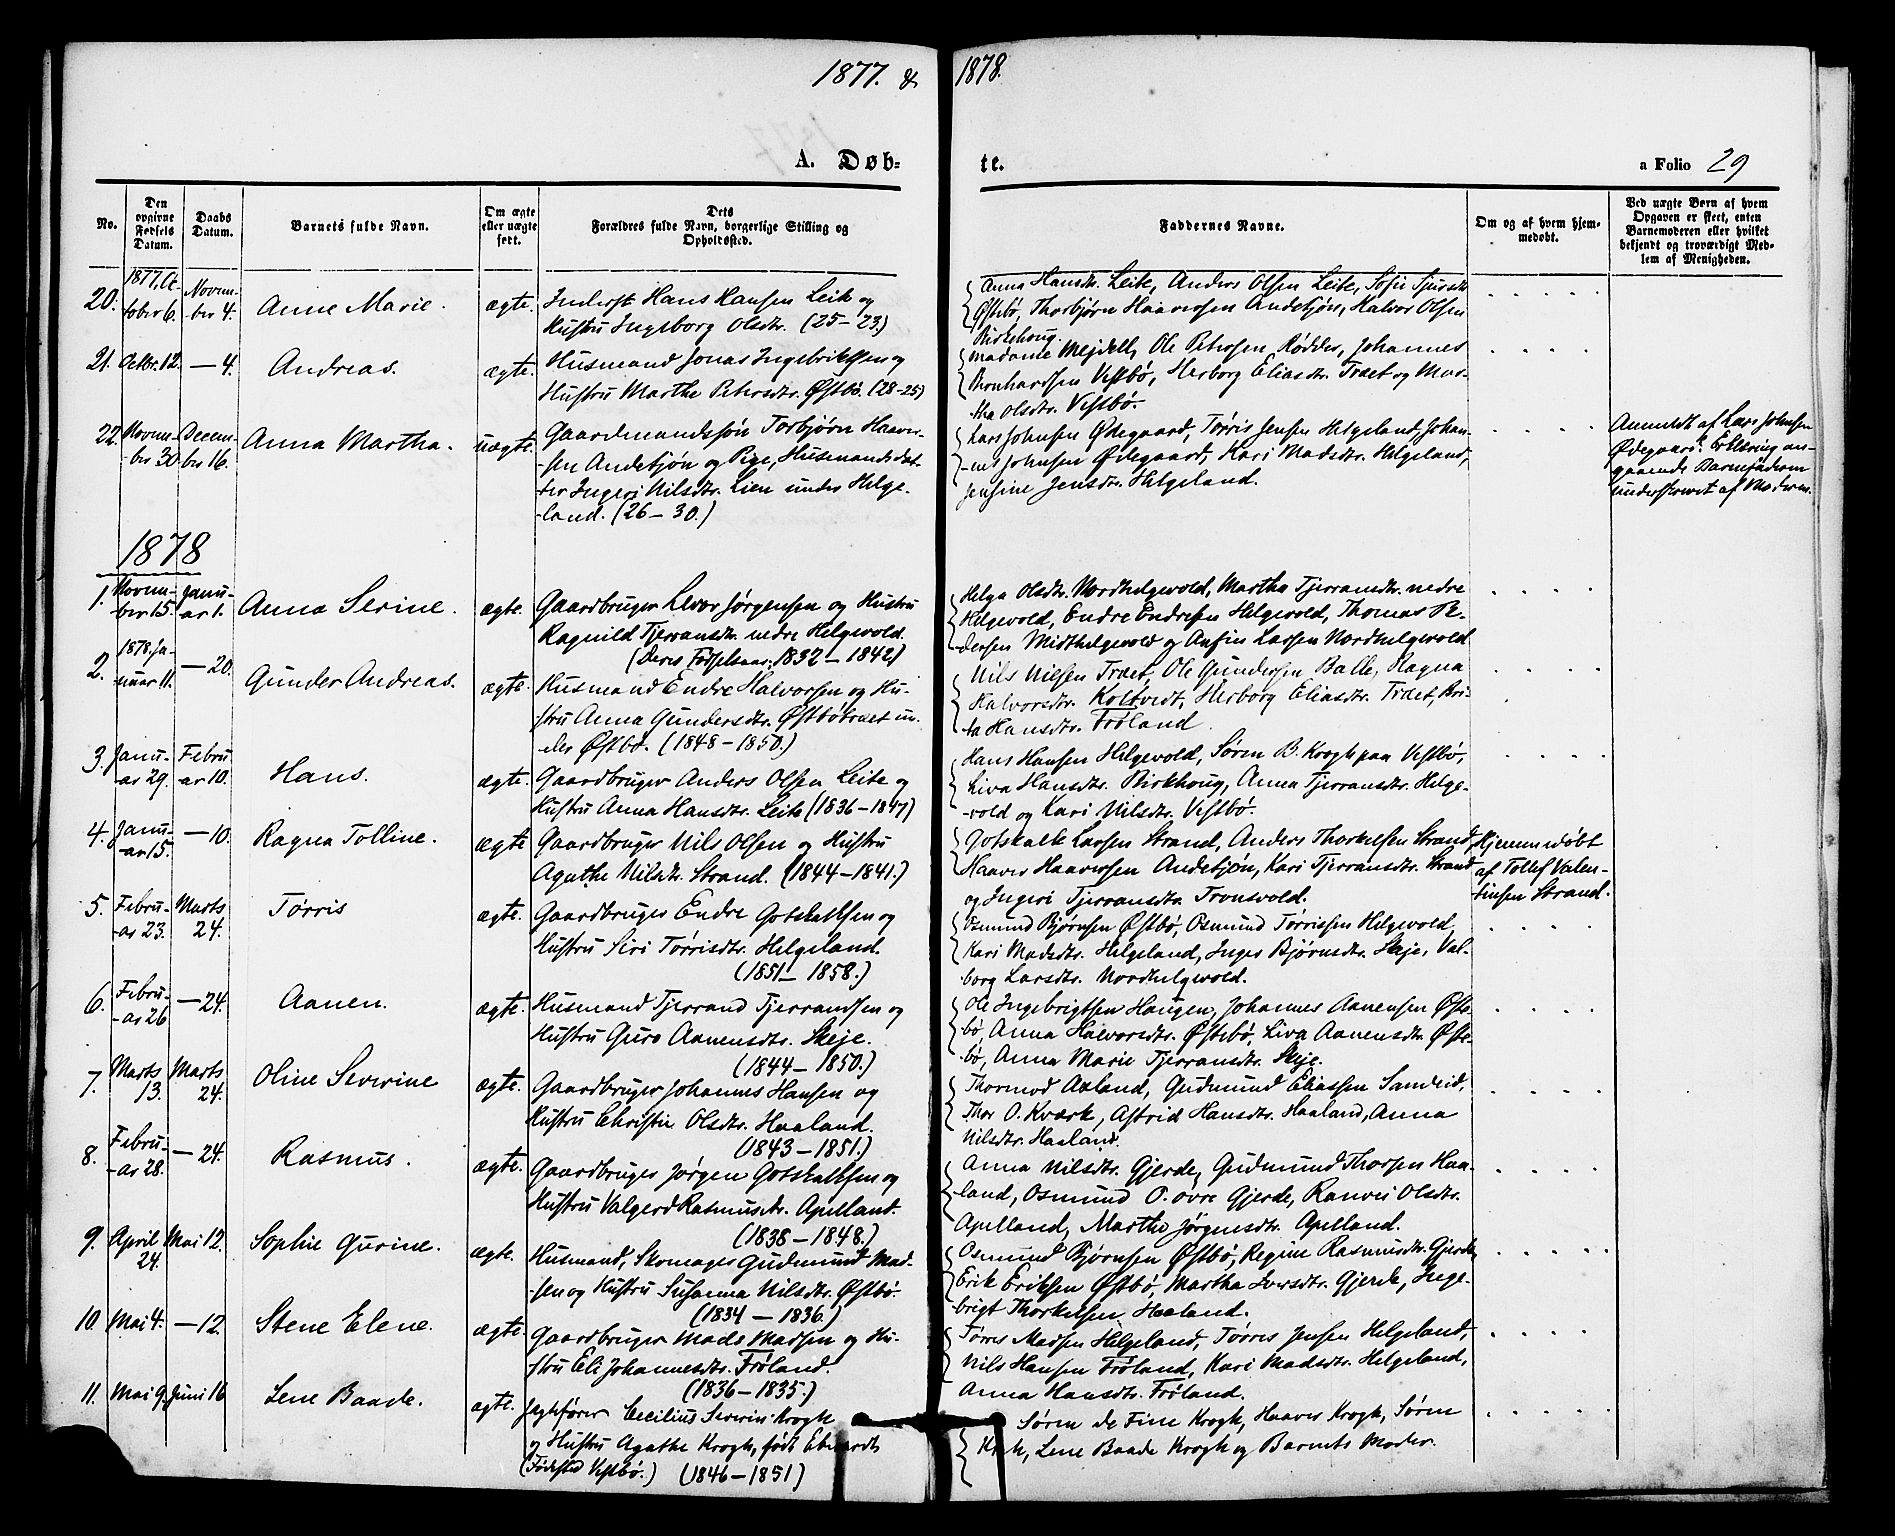 1877. & 1878.
A. Døb- te. a Folio 29
No.
Den opgivne Fødsels Datum.
Daabs Datum.
Barnets fulde Navn.
Om ægte eller uægte født.
Dets Forældres fulde Navn, borgerlige Stilling og Opholdssted.
Faddernes Navne.
Om og af hvem hjemmedøbt.
Ved uægte Børn af hvem Opgaven er skeet, enten Barnemoderen eller hvilket bekjendt og troværdigt Medlem af Menigheden.
20. 1877, October 6. November 4. Anne Marie. ægte. Inderst Hans Hansen Leite og
Hustru Ingeborg Olsdtr. (25-23.)
Anna Hansdtr. Leite, Anders Olsen Leite, Sofie Sjursdtr.
Østebö, Thorbjørn Haaversen Andebjön, Halvor Olsen
Birkehoug.
21. Octbr. 12. — 4. Andreas. ægte. Husmand Jonas Ingebriktsen og
Hustru Marthe Petersdtr. Østbö. (28-25)
Madame Mejdell, Ole Petersen Rødder, Johannes
Bernhardsen Vestbö, Herborg Eliasdtr. Træet og Mar-
tha Olsdtr. Vestbö.
22. Novem-ber 30 Decem-ber 16. Anna Martha. uægte. Gaardmandssön Torbjørn Haaver-
sen Andebjön og Pige, Husmandsdat-
ter Ingeri Nilsdtr. Lien under Helge-
land. (26-30.)
Lars Johnsen Ødegaard, Tørris Jensen Helgeland, Johan-
nes Johnsen Ødegaard, Kari Madsdtr. Helgeland,
Jensine Jensdtr. Helgeland.
Anmeldt af Lars Johnsen
Ødegaard. Erklæring an-
gaaende Barnefaderen
underskrevet af Moderen.
1878
1. Novem-ber 15. Janu-ar 1. Anna Serine. ægte. Gaardbruger Levor Jørgensen og Hustru
Ragnild Tjerransdtr. nedre Helgevold.
(Deres Fødselsaar: 1832-1842)
Helga Olsdtr. Nordhelgevold, Martha Tjerrandtr. nedre
Helgevold, Endre Endresen Helgevold, Thomas Pe-
dersen Midthelgevold og Anfin Larsen Nordhelgevold
2. 1878. Ja-nuar 11. — 20. Gunder Andreas. ægte. Husmand Endre Halvorsen og Hu-
stru Anna Gundersdtr. Østbötræet un-
der Østbö. (1848-1850.)
Nils Nilsen Træet, Ole Gundersen Balle, Ragna
Halvorsdtr. Koltvedt, Herborg Eliasdtr. Træet, Bri-
ta Hansdtr. Frøland
3. Janu-ar 29. Febru-ar 10. Hans. ægte. Gaardbruger Anders Olsen Leite og
Hustru Anna Hansdtr. Leite (1836-1847)
Hans Hansen Helgevold, Søren B. Krogh paa Vestbö,
Liva Hansdtr. Birkhoug, Anna Tjerransdtr. Helge-
vold og Kari Nilsdtr. Vestbö.
4. Janu-ar 15. — 10. Ragna Tolline. ægte Gaardbruger Nils Olsen og Hustru
Agathe Nilsdtr. Strand. (1844-1841.)
Gotskalk Larsen Strand, Anders Thorkelsen Strand,
Haaver Haaversen Andebjön, Kari Tjerransdtr. Strand
og Ingeri Tjerransdtr. Tronsvold.
Hjemmedøbt
af Tollef Valen-
tinsen Strand.
5. Febru-ar 23. Marts 24. Tørris ægte. Gaardbruger Endre Gotskalksen og
Hustru Siri Tørrisdtr. Helgeland.
(1851-1858.)
Osmund Bjørnsen Østbö, Osmund Tørrissen Helgevold,
Kari Madsdtr. Helgeland, Inger Bjørnsdtr. Skeje, Val-
borg Larsdtr. Nordhelgevold.
6. Febru-ar 26 — 24. Aanen. ægte. Husmand Tjerrand Tjerrandsen og
Hustru Guro Aanensdtr. Skeje.
(1844-1850.)
Ole Ingebrigtsen Haugen, Johannes Aanensen Øst-
bö, Anna Halvorsdtr. Østebö, Liva Aanensdtr. Øste-
bö, Anna Marie Tjerransdtr. Skeje.
7. Marts 13. Marts 24. Oline Severine ægte. Gaardbruger Johannes Hansen og
Hustru Christie Olsdtr. Haaland.
(1843-1851.)
Thormod Axland, Gudmund Eliassen Sandeid,
Thor O. Kværk, Astrid Hansdtr. Haaland, Anna
Nilsdtr. Haaland.
8. Febru-ar 28. — 24. Rasmus. ægte. Gaardbruger Jørgen Gotskalksen og
Hustru Valgerd Rasmusdtr. Apelland.
(1838-1848.)
Anna Nilsdtr. Gjerde, Gudmund Thorsen Haa-
land, Osmund O. øvre Gjerde, Ranvei Olsdtr.
Apelland, Marthe Jørgensdtr. Apelland.
9. April 24. Mai 12. Sophie Gurine. ægte. Husmand, Skomager Gudmund Mad-
sen og Hustru Susanna Nilsdtr. Østbö.
(1834-1836.)
Osmund Bjørnsen Østbö, Regine Rasmusdtr. Gjerde,
Erik Eriksen Østbö, Martha Iversdtr. Gjerde, Inge-
brigt Thorkelsen Haaland.
10. Mai 4. — 12. Stene Elene. ægte. Gaardbruger Mads Madsen og Hu-
stru Eli Johannesdtr. Frøland.
(1836-1835.)
Tørres Madsen Helgeland, Tørres Jensen Helgeland,
Nils Hansen Frøland, Kari Madsdtr. Helgeland,
Anna Hansdtr. Frøland.
11. Mai 9. Juni 16 Lene Baade. ægte. Jagtefører Cecilius Severin Krogh
og Hustru Agathe Krogh, født Edvards
(Fødested Vestbö.) (1846-1851)
Søren de Fine Krogh, Haaver Krogh, Søren
Krogh, Lene Baade Krogh og Barnets Moder.